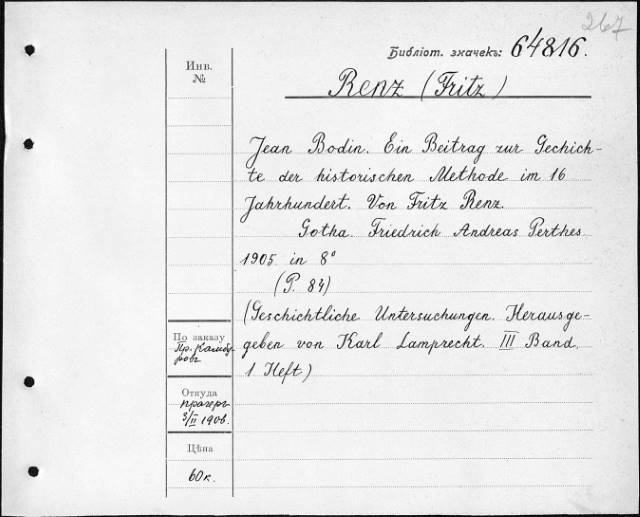 267
Библіот. значекъ: 64816.
Инв.
№
Renz (Fritz)
Jean Bodin. Ein Beitrag zur Gechich-
te der historischen Methode im 16
Jahrhundert. Von Fritz Renz.
Gotha. Friedrich Andreas Perthes
1905 in 8°
(P. 84)
(Geschichtliche Untersuchungen. Herausge-
geben von Karl Lamprecht. III Band,
1. Heft)
По заказу
Пр. Камбу-
ровъ
Откуда
прагеръ
3/II 1906.
Цѣна
60 к.